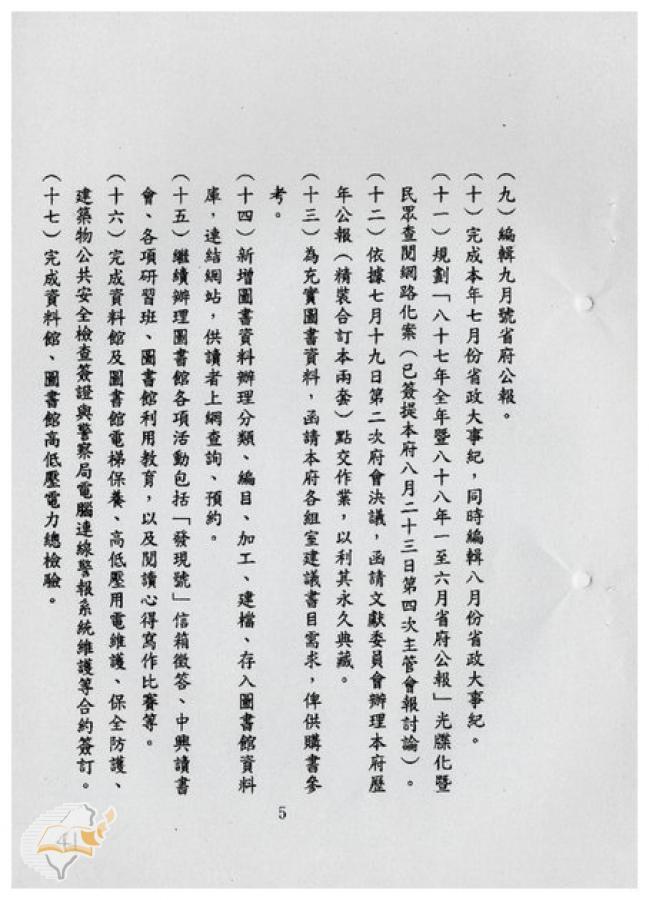 （九）編輯九月號省府公報。
（十）完成本年七月份省政大事紀，同時編輯八月份省政大事紀。
（十一）規劃「八十七年全年暨八十八年一至六月省府公報」光牒化暨
民眾查閱網路化案（已簽提本府八月二十三日第四次主管會報討論）。
（十二）依據七月十九日第二次府會決議，函請文獻委員會辦理本府歷
年公報（精裝合訂本兩套）點交作業，以利其永久典藏。
（十三）為充實圖書資料，函請本府各組室建議書目需求，俾供購書參
考。
（十四）新增圖書資料辦理分類、編目、加工、建檔、存入圖書館資料
庫，連結網站，供讀者上網查詢、預約。
（十五）繼續辦理圖書館各項活動包括「發現號」信箱徵答、中興讀書
會、各項研習班、圖書館利用教育，以及閱讀心得寫作比賽等。
（十六）完成資料館及圖書館電梯保養、高低壓用電維護、保全防護、
建築物公共安全檢查簽證與警察局電腦連線警報系統維護等合約簽訂。
（十七）完成資料館、圖書館高低壓電力總檢驗。
5
41